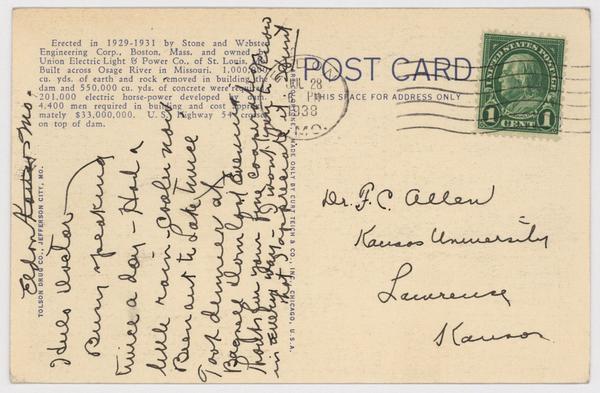 Erected in 1929-1931 by Stone and Webster
Engineering Corp., Boston, Mass. and owned by
Union Electric Light & Power Co., of St. Louis, Mo.
Built across Osage River in Missouri. 1,000,000
cu. yds. of earth and rock removed in building the
dam and 550,000 cu. yds. of concrete were required.
201,000 electric horse-power developed by dam.
4,400 men required in building and cost approxi-
mately $33,000,000. U. S. Highway 54 crosses
on top of dam.
POST CARD
THIS SPACE FOR ADDRESS ONLY
JUL 28
PM
1938
MO.
UNITED STATES POSTAGE
1 CENT 1
Dr. F. C. Allen
Kansas University
Lawrence
Kansas
TOLSON DRUG CO., JEFFERSON CITY, MO.
MADE ONLY BY CURT TEICH & CO., INC., CHICAGO, U.S.A.
Eldon, Mo.
Hello Doctor
Busy speaking
twice a day - Had a
little rain - Cooler now
Been out to Lake twice
Took dinner at
Bagnell Dam last evening
Thanks for your fine cooperation
in every way - I won't